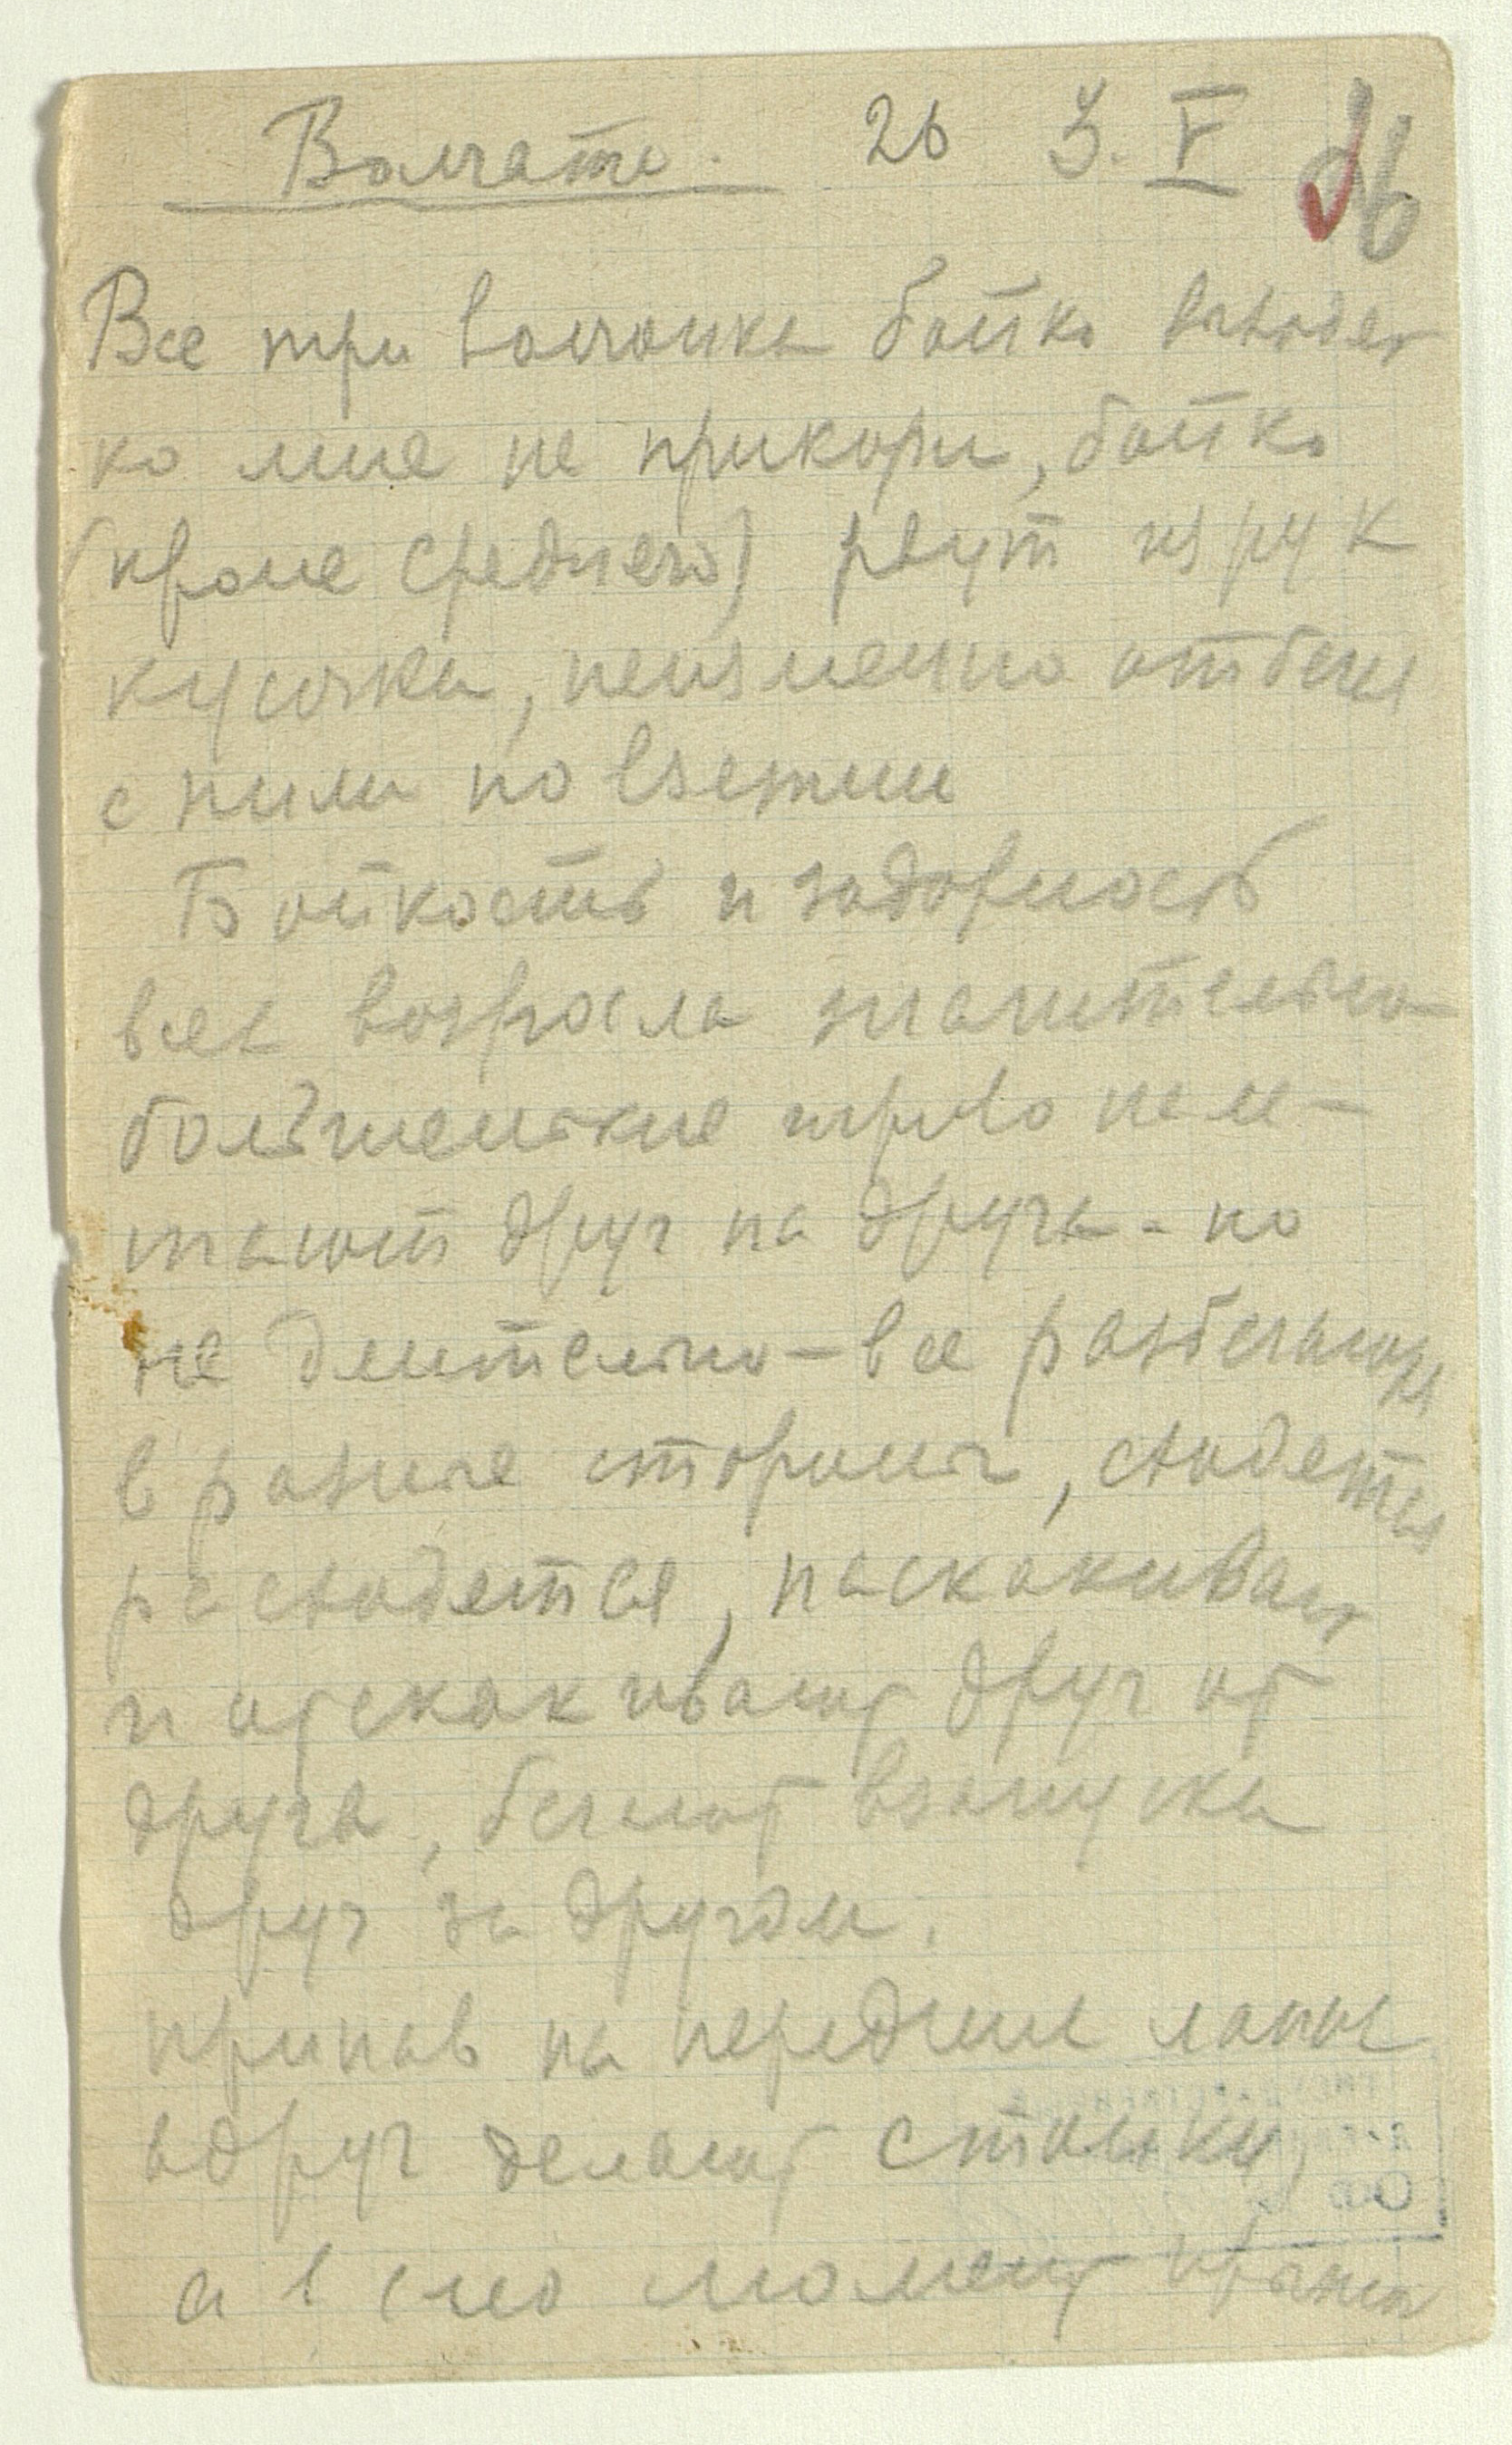 Волчата. 26 3. V 26
Все три волчонка бойко выходят
ко мне на прикорм, бойко
(кроме среднего) рвут из рук
кусочки, неизменно отбегая
с ними по взятии
Бойкость и задорность
всех возросла значительно
большенькие игриво на-
друг на друга - но
не длительно - все разбегаются
в разные стороны, сходятся
расходятся, наскакивают
и отскакивают друг от
друга, бегают взапуски
друг за другом.
припав на передние лапы
вдруг делают стойку,
а в момент